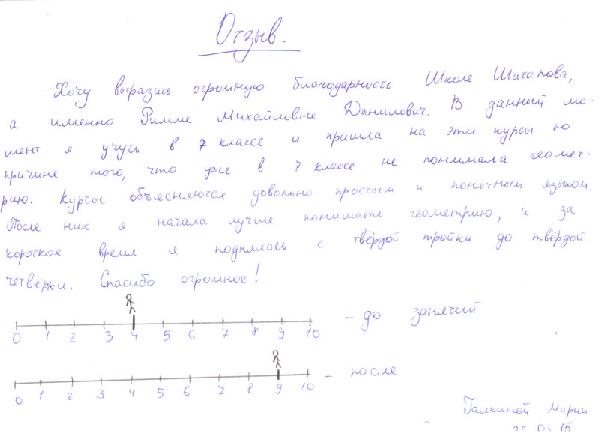 Отзыв.
Хочу выразить огромную благодарность Школе Шаталова,
а именно Римме Михайловне Данилович. В данный мо-
мент я учусь в 7 классе и пришла на эти курсы по
причине того, что уже в 7 классе не понимала геомет-
рию. Курсы объясняются довольно простым и понятным языком.
После них я начала лучше понимать геометрию, и за
короткое время я поднялась с твёрдой тройки до твёрдой
четвёрки. Спасибо огромное!
0 1 2 3 4 5 6 7 8 9 10 - до занятий
0 1 2 3 4 5 6 7 8 9 10 - после
Галкиной Марии